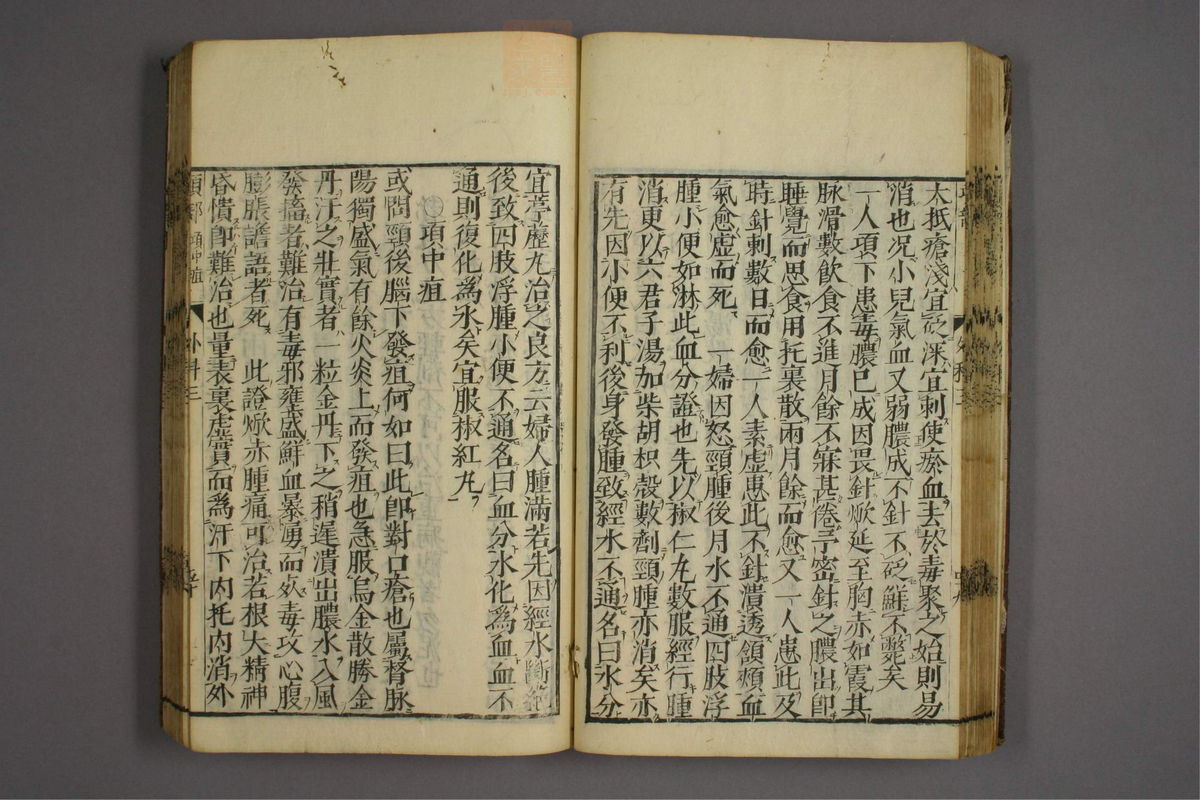 大抵瘡淺宜砭深宜刺使瘀血去於毒聚之始則易
消也况小兒氣血又弱膿成不針不砭鮮不斃矣
一人項下患毒膿已成因畏針焮延至胸赤如霞其
脉滑數飲食不進月餘不寐甚倦予密針之膿出即
睡覺而思食用托裏散兩月餘而愈又一人患此及
時針刺數日而愈一人素虚患此不針潰透頷頰血
氣愈虚而死 一婦因怒頸腫後月水不通四肢浮
腫小便如淋此血分證也先以椒仁丸數服經行腫
消更以六君子湯加柴胡枳殼數劑頸腫亦消矣亦
有先因小便不利後身發腫致經水不通名曰水分
宜葶藶丸治之良方云婦人腫滿若先因經水斷絶
後致四肢浮腫小便不通名曰血分水化爲血血不
通則復化爲水矣宜服椒紅丸
項中疽
或問頸後腦下發疽何如曰此即對口瘡也屬督脉
陽獨盛氣有餘火炎上而發疽也急服烏金散勝金
丹汗之壯實者一粒金丹下之稍遲潰出膿水入風
發搐者難治有毒邪壅盛鮮血暴勇而

毒攻心腹
膨脹譫語者死 此證焮赤腫痛可治若根大精神
昏憒即難治也量表裏虚實而爲汗下内托内消外
項部 項中疽 外科三